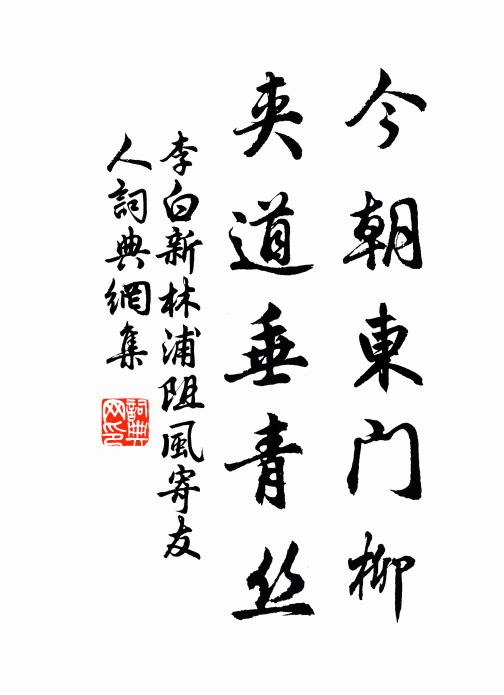 今朝東門柳
夾道垂青丝
李白新林浦阻風寄友
人詞典網集
詞典
网印